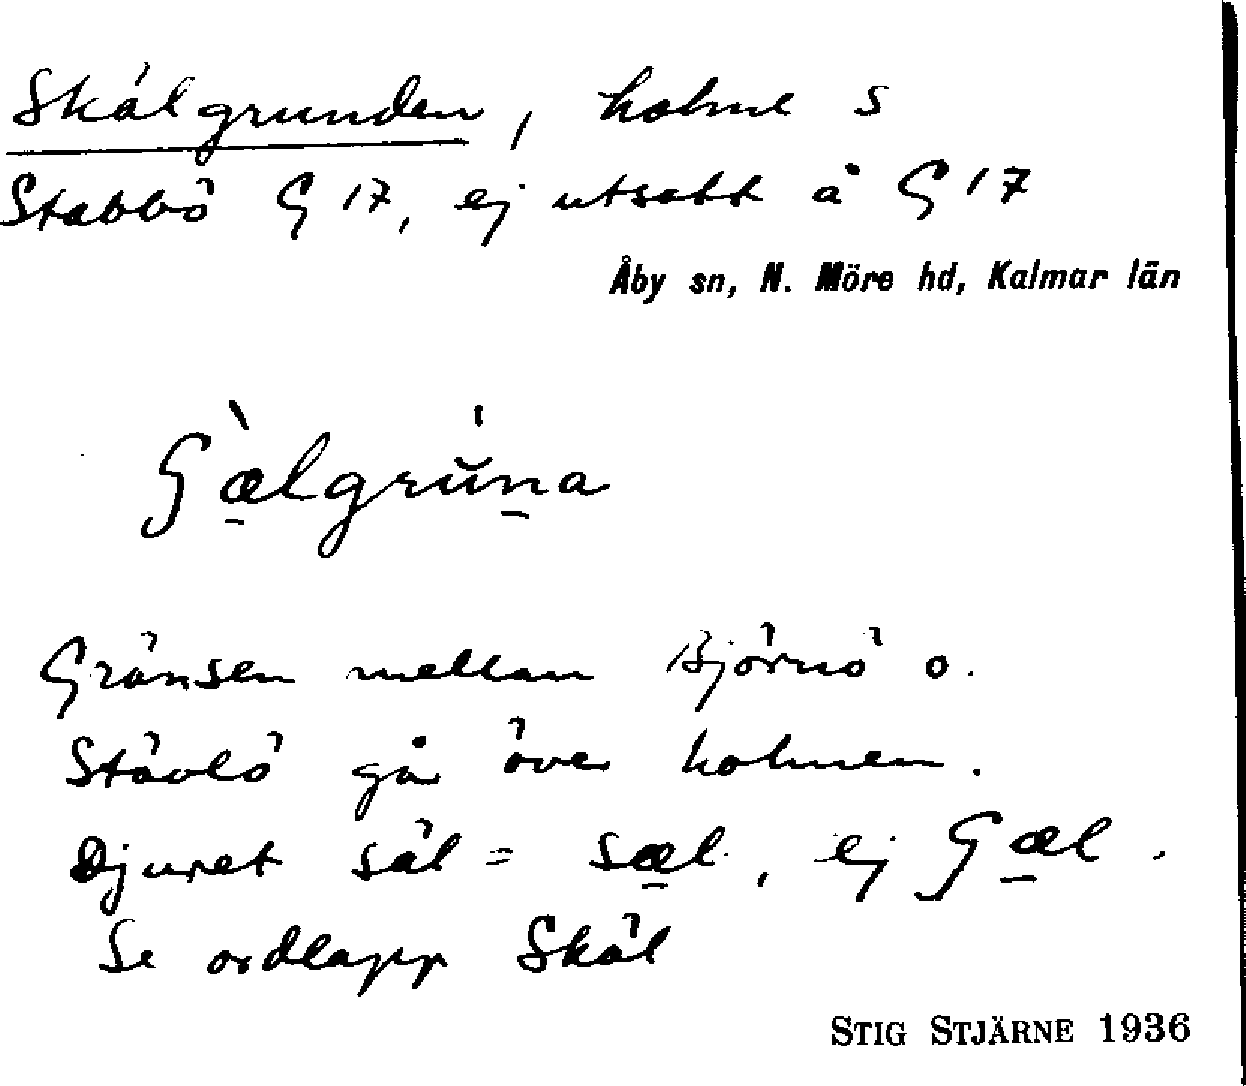 Skälgrunden, holme S
Stabbö G 17, ej utsatt å G 17
Åby sn, N. Möre hd, Kalmar län
ʃæ̠̀lgrŭ'n̠a
Gränsen mellan Björnö o.
Stävlö går över holmen.
Djuret säl = sæ̠l, ej ʃæ̠l.
Se ordlapp Skäl
STIG STJÄRNE 1936